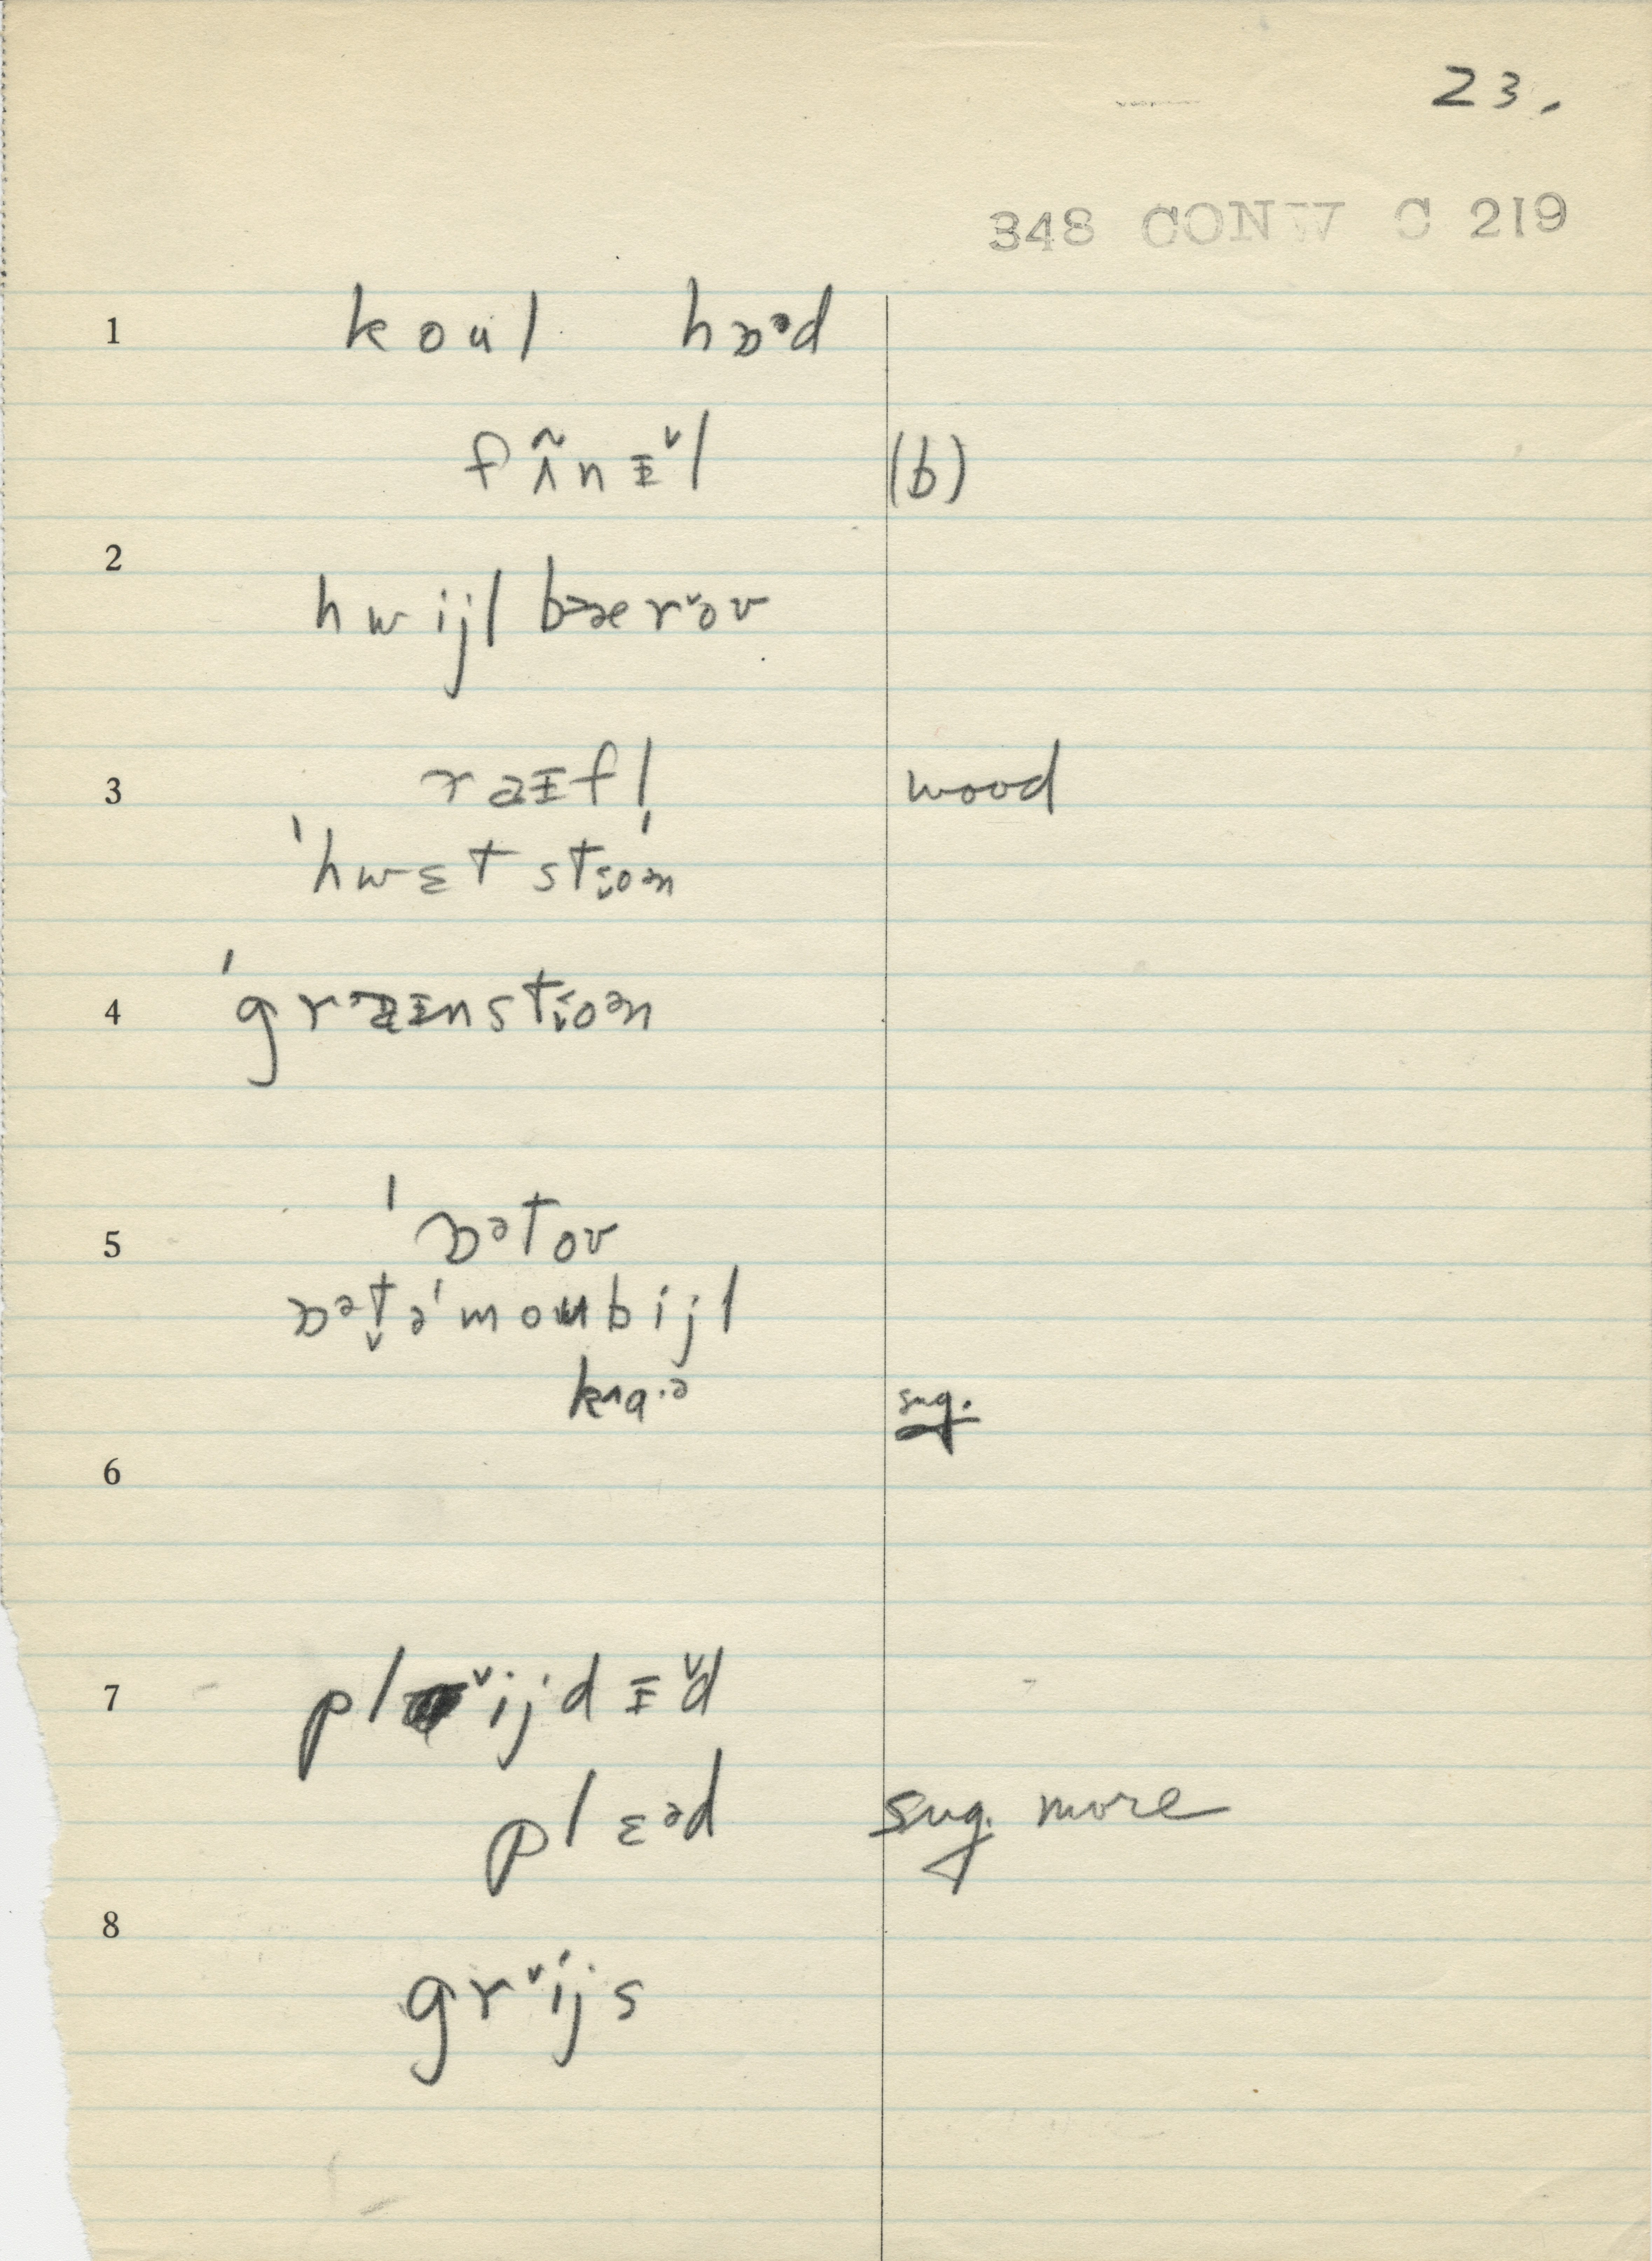 23.
348 CONW C 219
1 koul hɒᵊd
fʌ̃nɪ̵ˇl (b)
2
hwijl bæerˇov
3 raɪ̵fl wood
ˈhwɛt stio̯ən
4 ˈgraɪ̵nstio̯ən
5 ˈɒᵊtov
ɒᵊt̬əˈmoubijl
kʌa·ᵊ sug.
6
7 plˇijdɪ̵ˇd
plɛᵊd sug. more
8
grˇijs